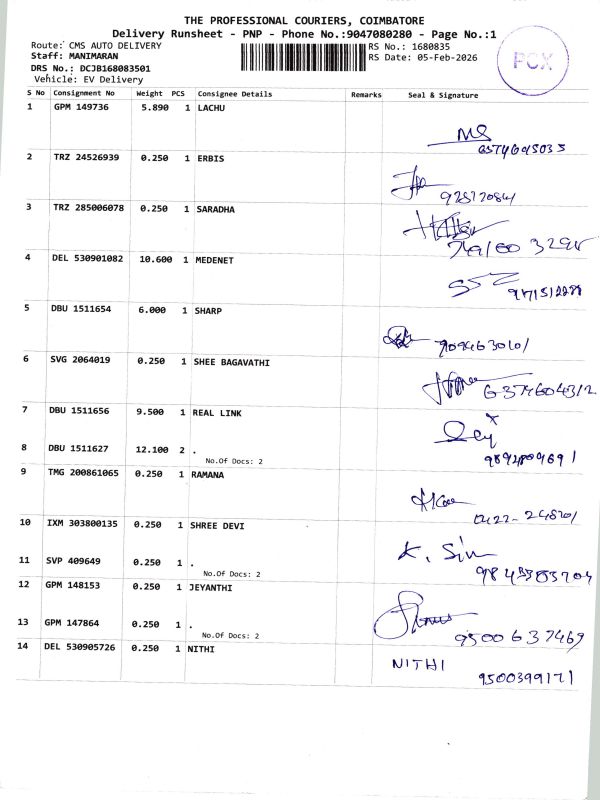 THE PROFESSIONAL COURIERS, COIMBATORE
Delivery Runsheet - PNP - Phone No.:9047080280 - Page No.:1
Route: CMS AUTO DELIVERY RS No.: 1680835
Staff: MANIMARAN RS Date: 05-Feb-2026
DRS No.: DCJB168083501
Vehicle: EV Delivery
PCX
S No Consignment No Weight PCS Consignee Details Remarks Seal & Signature
1 GPM 149736 5.890 1 LACHU
2 TRZ 24526939 0.250 1 ERBIS
3 TRZ 285006078 0.250 1 SARADHA
4 DEL 530901082 10.600 1 MEDENET
5 DBU 1511654 6.000 1 SHARP
6 SVG 2064019 0.250 1 SHEE BAGAVATHI
6374604312
7 DBU 1511656 9.500 1 REAL LINK
8 DBU 1511627 12.100 2 .
No.Of Docs: 2
9 TMG 200861065 0.250 1 RAMANA
10 IXM 303800135 0.250 1 SHREE DEVI
11 SVP 409649 0.250 1 .
No.Of Docs: 2
12 GPM 148153 0.250 1 JEYANTHI
13 GPM 147864 0.250 1 .
No.Of Docs: 2
9500637469
14 DEL 530905726 0.250 1 NITHI
NITHI
9500399171